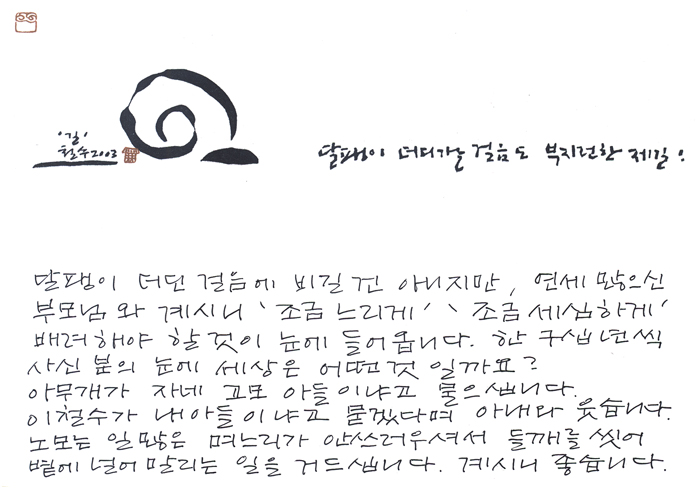 '길'
철수2003
달팽이 더디가는 걸음도 부지런한 제길!
달팽이 더딘 걸음에 비길 건 아니지만, 연세 많으신
부모님와 계시니 '조금 느리게' '조금 세심하게'
배려해야 할것이 눈에 들어옵니다. 한 구십년씩
사신 분의 눈에 세상은 어떤것 일까요?
아무개가 자네 고모 아들이냐고 물으십니다.
이철수가 내아들이냐고 묻겠다며 아내와 웃습니다.
노모는 일많은 며느리가 안쓰러우셔서 들깨를 씻어
볕에 널어 말리는 일을 거드십니다. 계시니 좋습니다.